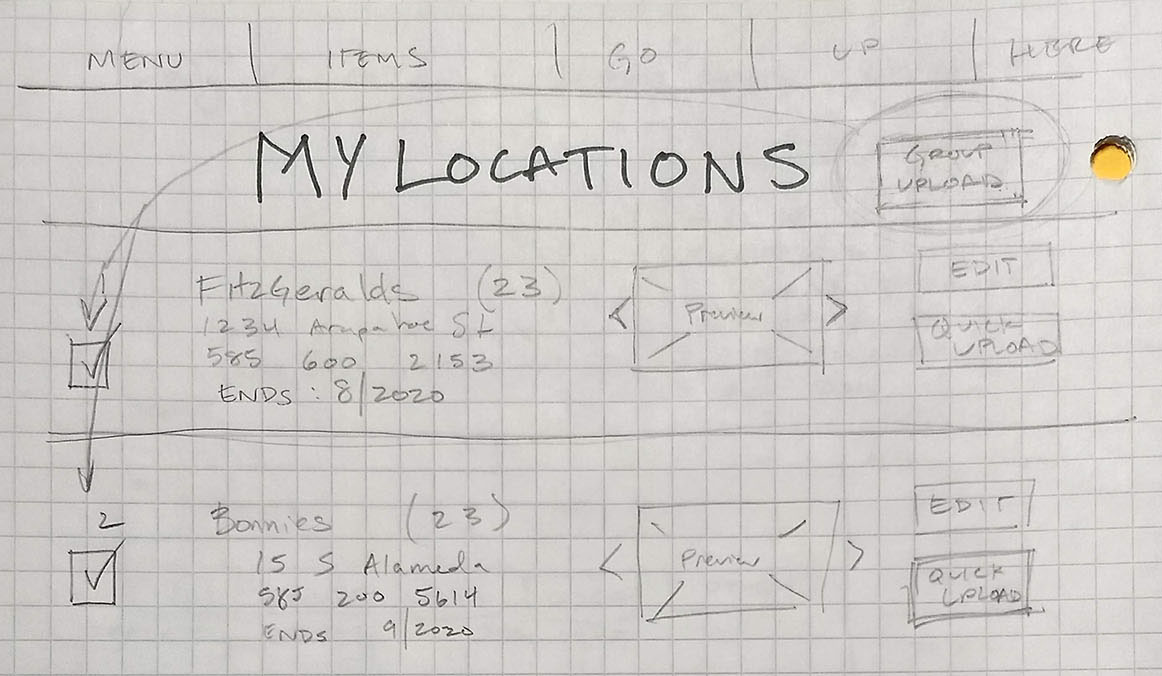 MENU | ITEMS | GO | UP | HERE
MY LOCATIONS
GROUP
UPLOAD
1
FitzGeralds (23)
1234 Arapahoe St
585 600 2153
ENDS : 8/2020
< Preview >
EDIT
QUICK
UPLOAD
2
Bonnies (23)
15 S Alameda
585 200 5614
ENDS 9/2020
< Preview >
EDIT
QUICK
UPLOAD